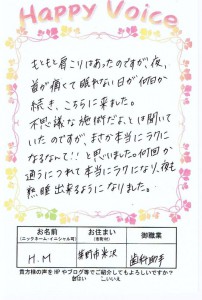 Happy Voice
もともと肩こりはあったのですが、夜、
首が痛くて眠れない日が何日か
続き、こちらに来ました。
不思議な施術だよ、とは聞いて
いたのですが、まさか本当にラクに
なるなんて!!と思いました。何回か
通うにつれて本当にラクになり、夜も
熟睡出来るようになりました。
お名前 お住まい 御職業
(ニックネーム・イニシャル可) (市町村)
H.M 市米沢 歯科助手
貴方様の声をHPやブログ等でご紹介してもよろしいですか?
はい いいえ